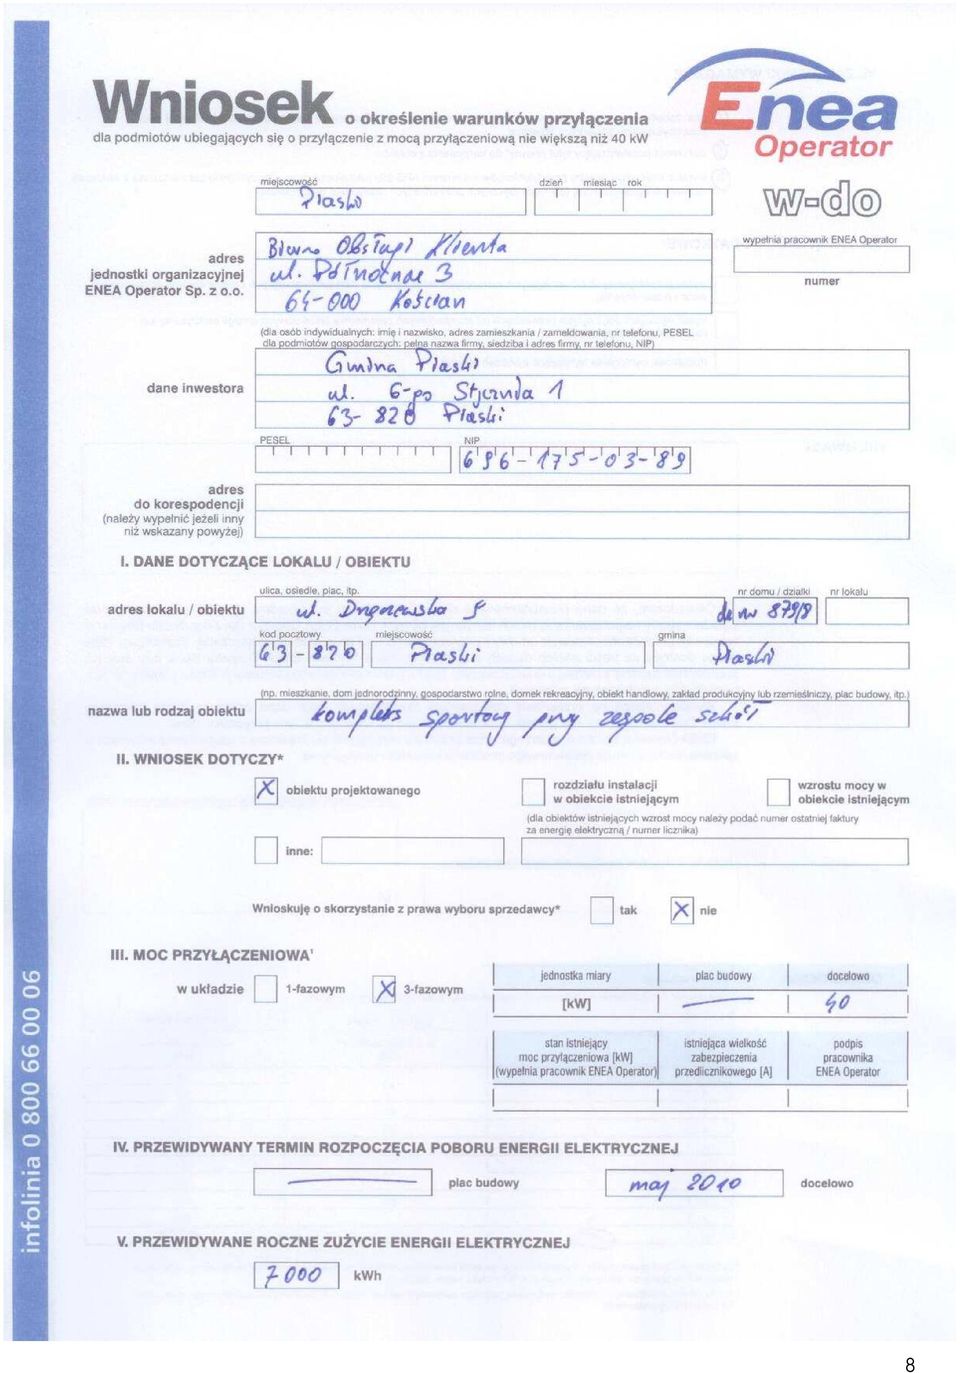 Wniosek o określenie warunków przyłączenia
dla podmiotów ubiegających się o przyłączenie z mocą przyłączeniową nie większą niż 40 kW
Enea
Operator
miejscowość
Piaski
dzień miesiąc rok
w-do
adres
jednostki organizacyjnej
ENEA Operator Sp. z o.o.
Biuro Obsługi Klienta
ul. Północna 3
64-000 Kościan
wypełnia pracownik ENEA Operator
numer
(dla osób indywidualnych: imię i nazwisko, adres zamieszkania / zameldowania, nr telefonu, PESEL
dla podmiotów gospodarczych: pełna nazwa firmy, siedziba i adres firmy, nr telefonu, NIP)
dane inwestora
Gmina Piaski
ul. 6-go Stycznia 1
63-820 Piaski
PESEL
NIP
696-175-03-89
adres
do korespodencji
(należy wypełnić jeżeli inny
niż wskazany powyżej)
I. DANE DOTYCZĄCE LOKALU / OBIEKTU
adres lokalu / obiektu
ulica, osiedle, plac, itp.
nr domu / działki
nr lokalu
ul. Drzęczewska 5
dz nr 879/8
kod pocztowy
miejscowość
gmina
63-820
Piaski
Piaski
(np. mieszkanie, dom jednorodzinny, gospodarstwo rolne, domek rekreacyjny, obiekt handlowy, zakład produkcyjny lub rzemieślniczy, plac budowy, itp.)
nazwa lub rodzaj obiektu
kompleks sportowy przy zespole szkół
II. WNIOSEK DOTYCZY*
X obiektu projektowanego
rozdziału instalacji
w obiekcie istniejącym
wzrostu mocy w
obiekcie istniejącym
(dla obiektów istniejących wzrost mocy należy podać numer ostatniej faktury
za energię elektryczną / numer licznika)
inne:
Wnioskuję o skorzystanie z prawa wyboru sprzedawcy* tak X nie
III. MOC PRZYŁĄCZENIOWA¹
w układzie 1-fazowym X 3-fazowym
jednostka miary plac budowy docelowo
[kW] — 40
stan istniejący
moc przyłączeniowa [kW]
(wypełnia pracownik ENEA Operator)
istniejąca wielkość
zabezpieczenia
przedlicznikowego [A]
podpis
pracownika
ENEA Operator
IV. PRZEWIDYWANY TERMIN ROZPOCZĘCIA POBORU ENERGII ELEKTRYCZNEJ
— plac budowy maj 2010 docelowo
V. PRZEWIDYWANE ROCZNE ZUŻYCIE ENERGII ELEKTRYCZNEJ
7000 kWh
infolinia 0 800 66 00 06
8